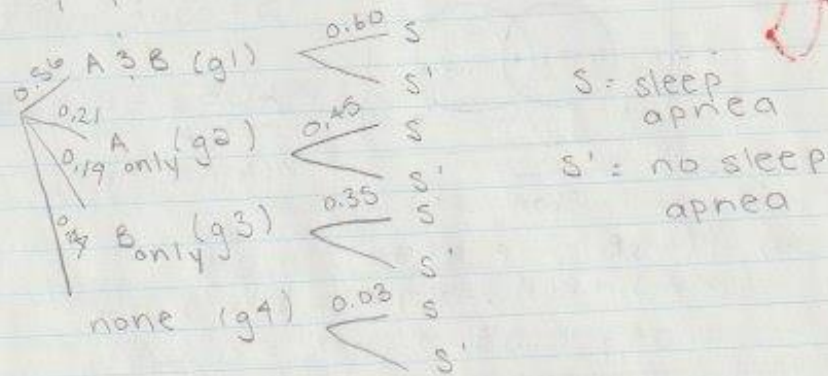 0.56 A & B (g1) 0.60 S
S'
0.21 A only (g2) 0.45 S
S'
0.19 B only (g3) 0.35 S
S'
none (g4) 0.03 S
S'
S = sleep
apnea
S' = no sleep
apnea